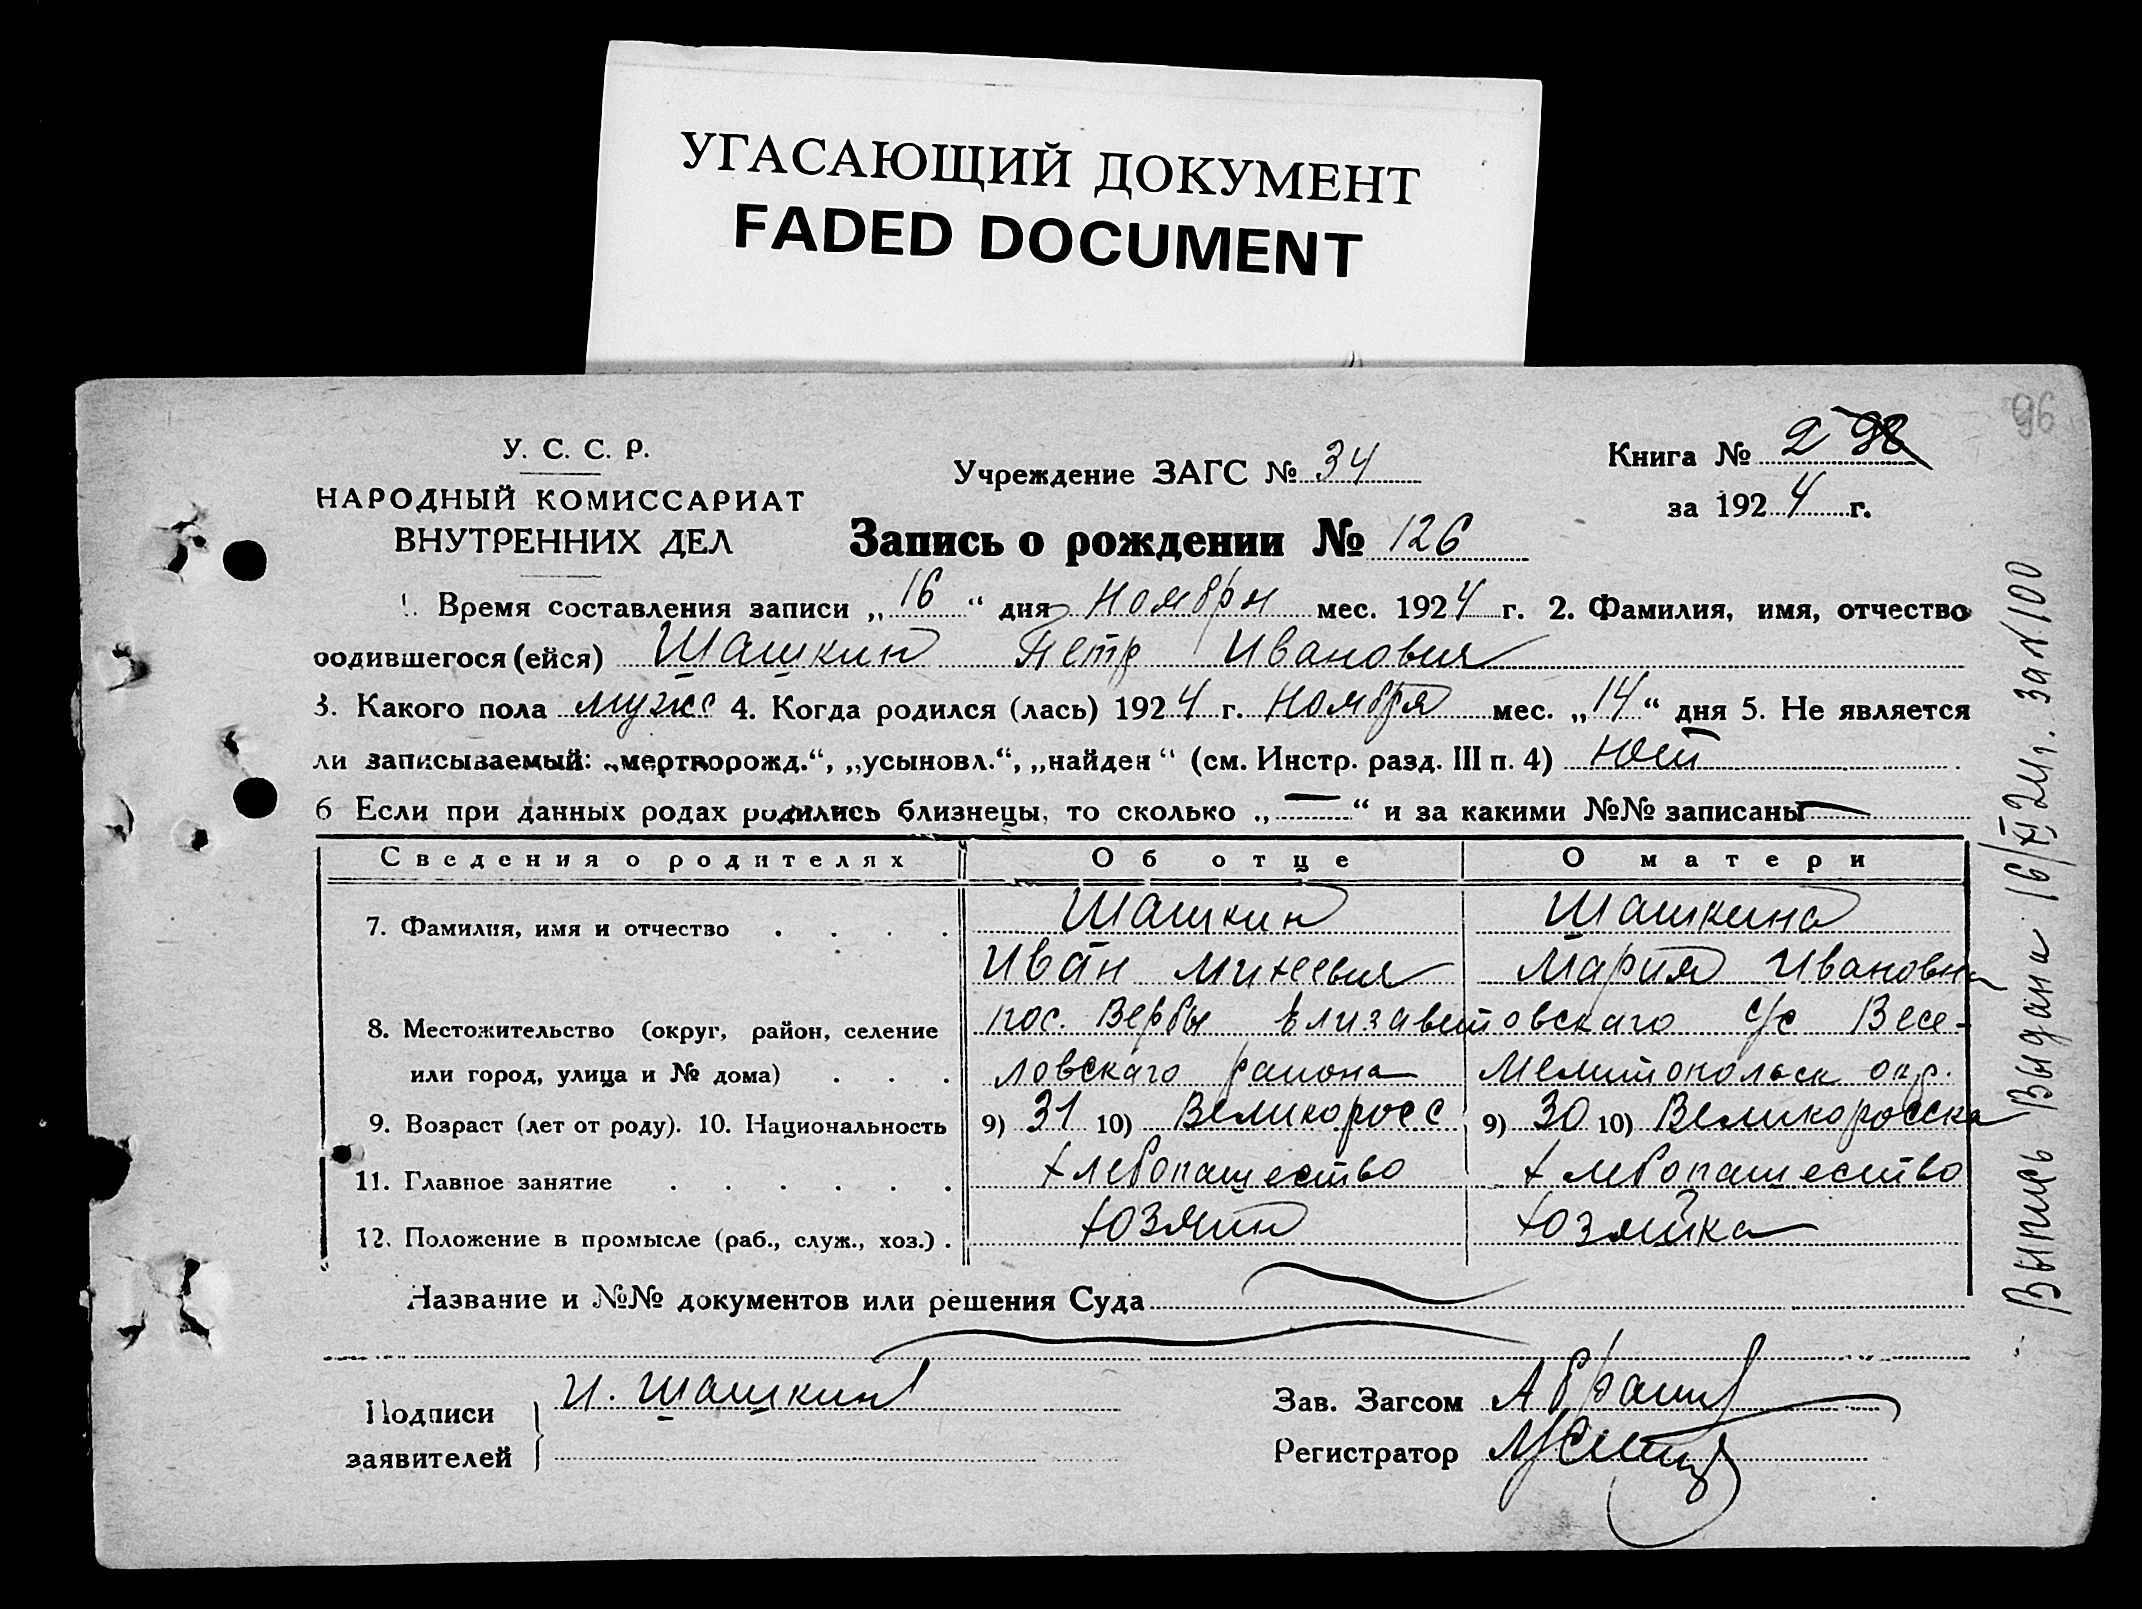 УГАСАЮЩИЙ ДОКУМЕНТ
FADED DOCUMENT
96
У. С. С. Р.
НАРОДНЫЙ КОМИССАРИАТ
ВНУТРЕННИХ ДЕЛ
Учреждение ЗАГС № 34
Книга № 2 98
за 1924 г.
Запись о рождении № 126
1. Время составления записи „16“ дня Ноября мес. 1924 г. 2. Фамилия, имя, отчество
родившегося (ейся) Шашкин Петр Иванович
3. Какого пола муж 4. Когда родился (лась) 1924 г. Ноября мес. „14“ дня 5. Не является
ли записываемый: „мертворожд.“, „усыновл.“, „найден“ (см. Инстр. разд. III п. 4) Нет
6 Если при данных родах родились близнецы, то сколько „—“ и за какими №№ записаны —
Сведения о родителях Об отце О матери
7. Фамилия, имя и отчество . . . . Шашкин Шашкина
Иван Михеевич Мария Ивановна
8. Местожительство (округ, район, селение пос. Вербы Елизаветовскаго с/с Весе-
или город, улица и № дома) . . . ловскаго района Мелитопольск окр.
9. Возраст (лет от роду). 10. Национальность 9) 31 10) Великоросс 9) 30 10) Великоросска
11. Главное занятие . . . . . . Хлебопашество Хлебопашество
12. Положение в промысле (раб., служ., хоз.) . Хозяин Хозяйка
Название и №№ документов или решения Суда
Подписи
заявителей
И. Шашкин
Зав. Загсом
Регистратор
Выпись Выдана 16/XI 24г. за № 100